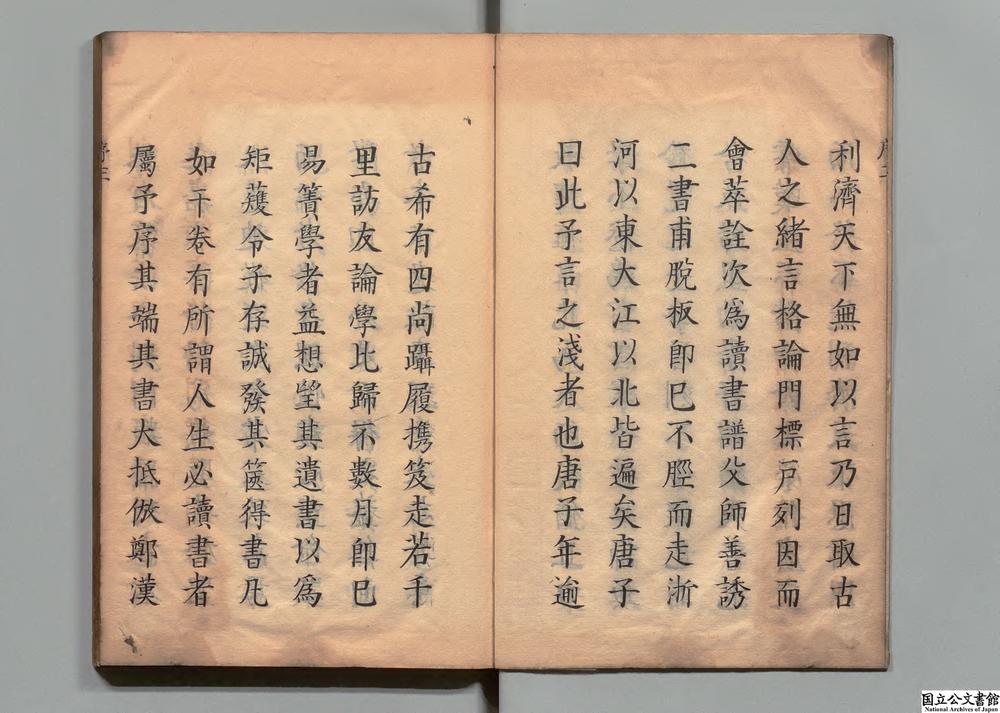 利濟天下無如以言乃日取古
人之緒言格論門標戸列因而
會萃詮次爲讀書譜父師善誘
二書甫脫板卽已不脛而走淅
河以東大江以北皆遍矣唐子
曰此予言之淺者也唐子年逾
古希有四尚躡履携笈走若千
里訪友論學比歸不數月卽已
易簀學者益想望其遺書以爲
矩蒦令子存誠發其篋得書凡
如干卷有所謂人生必讀書者
屬予序其端其書大抵倣鄭漢
序三
国立公文書館
National Archives of Japan